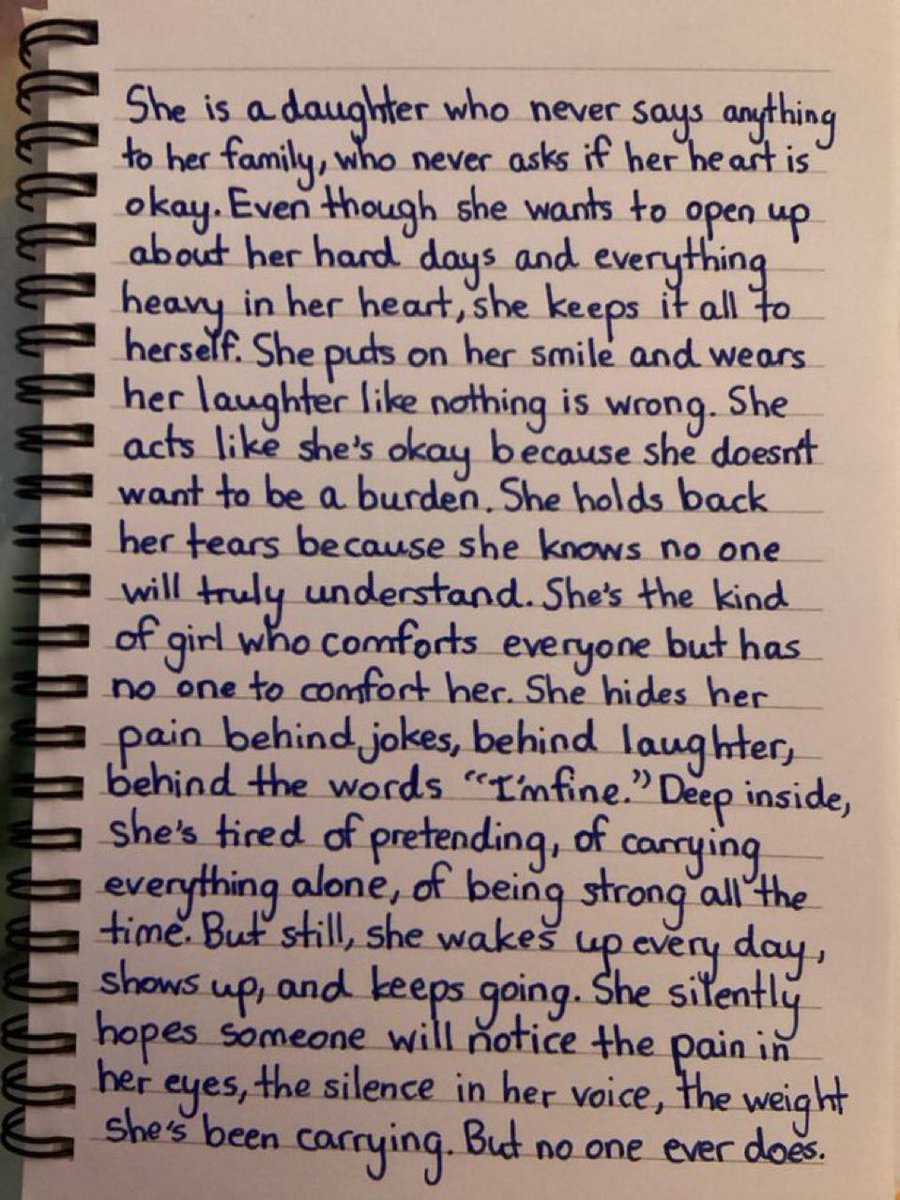 She is a daughter who never says anything
to her family, who never asks if her heart is
okay. Even though she wants to open up
about her hard days and everything
heavy in her heart, she keeps it all to
herself. She puts on her smile and wears
her laughter like nothing is wrong. She
acts like she's okay because she doesn't
want to be a burden. She holds back
her tears because she knows no one
will truly understand. She's the kind
of girl who comforts everyone but has
no one to comfort her. She hides her
pain behind jokes, behind laughter,
behind the words "I'm fine." Deep inside,
she's tired of pretending, of carrying
everything alone, of being strong all the
time. But still, she wakes up every day,
shows up, and keeps going. She silently
hopes someone will notice the pain in
her eyes, the silence in her voice, the weight
she's been carrying. But no one ever does.